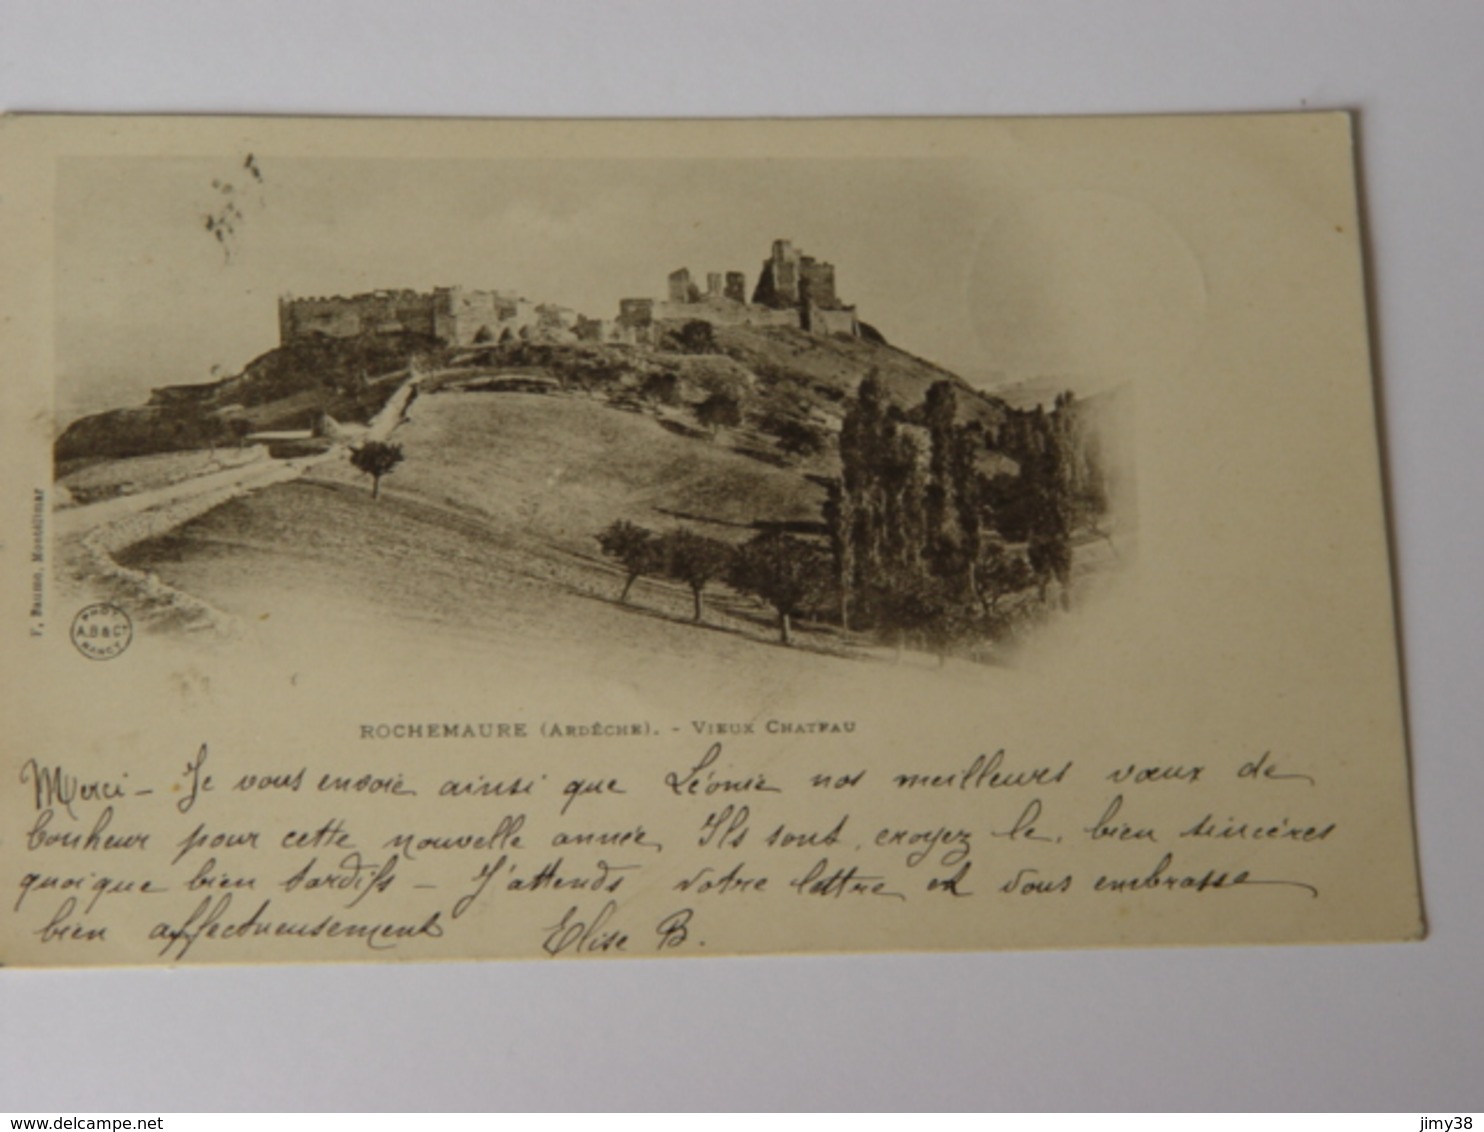 F. Baume, Montélimar
PHOT
A.B & Cie
NANCY
ROCHEMAURE (ARDÊCHE). - VIEUX CHATEAU
Merci - Je vous envoie ainsi que Léonie nos meilleurs vœux de
bonheur pour cette nouvelle année, Ils sont, croyez le, bien sincères
quoique bien tardifs - J'attends votre lettre et vous embrasse
bien affectueusement Elise B.
www.delcampe.net
jimy38